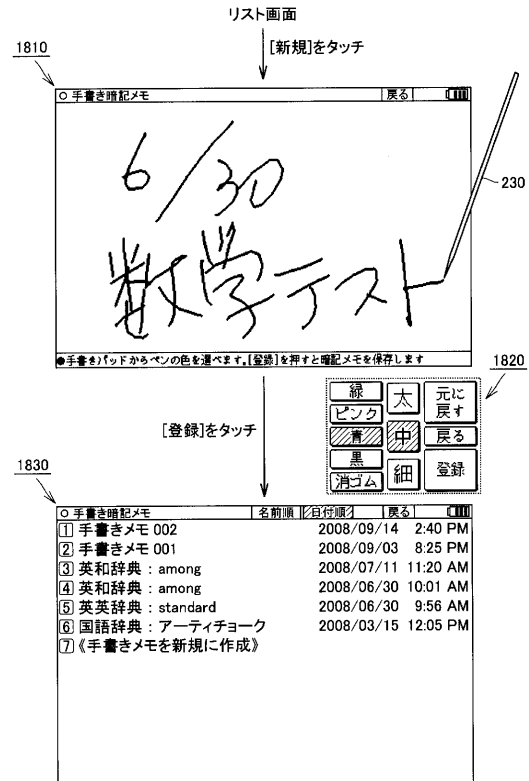 リスト画面
[新規]をタッチ
1810
○ 手書き暗記メモ 戻る
6/30
数学テスト
230
●手書きパッドからペンの色を選べます。[登録]を押すと暗記メモを保存します
1820
緑 太 元に戻す
ピンク
青 中 戻る
黒
消ゴム 細 登録
[登録]をタッチ
1830
○ 手書き暗記メモ 名前順 日付順 戻る
1 手書きメモ 002 2008/09/14 2:40 PM
2 手書きメモ 001 2008/09/03 8:25 PM
3 英和辞典:among 2008/07/11 11:20 AM
4 英和辞典:among 2008/06/30 10:01 AM
5 英英辞典:standard 2008/06/30 9:56 AM
6 国語辞典:アーティチョーク 2008/03/15 12:05 PM
7 《手書きメモを新規に作成》